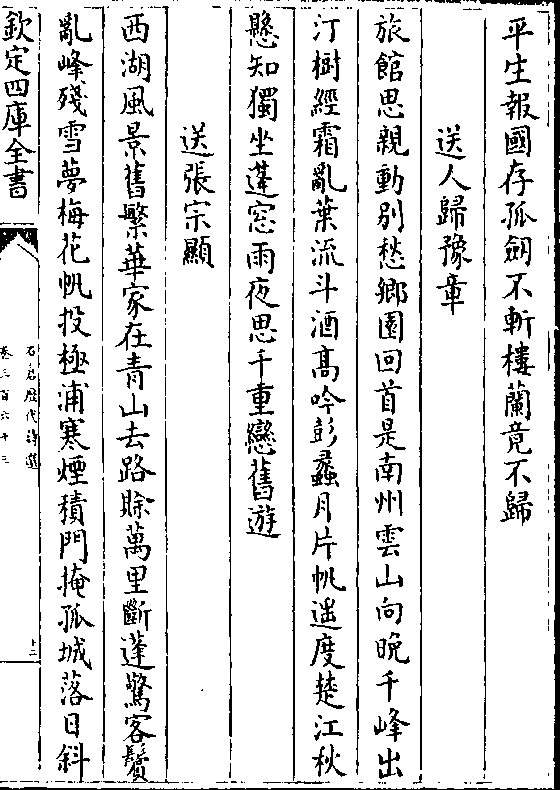 平生報國存孤劒不斬樓蘭竟不歸
送人歸豫章
旅館思親動别愁鄉園回首是南州雲山向晩千峰出
汀樹經霜亂葉流斗酒髙吟彭蠡月片帆遥度楚江秋
懸知獨坐蓬窓雨夜思千重戀舊遊
送張宗顯
西湖風景舊繁華家在青山去路賒萬里斷蓬驚客鬢
亂峰殘雪夢梅花帆投極浦寒煙積門掩孤城落日斜
欽定四庫全書
石倉歴代詩選
卷三百六十三
十二